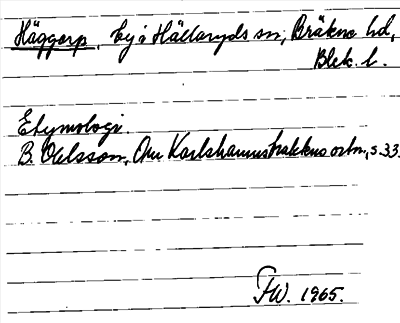 Häggarp, by i Hällaryds sn, Bräkne hd,
Blek. l.
Etymologi.
B. Olsson, Om Karlshamnstraktens ortn., s. 33.
FW. 1965.